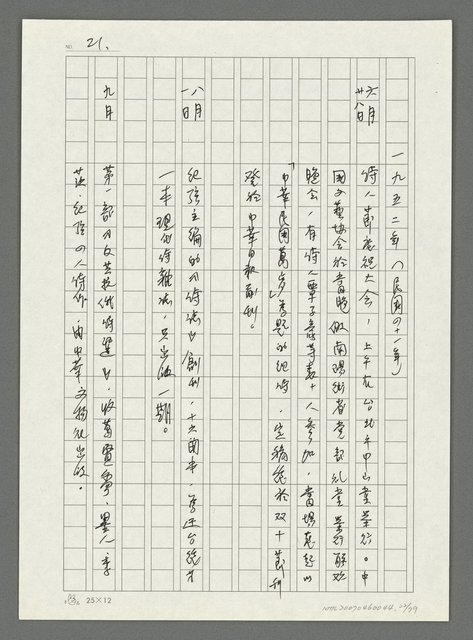 NO. 21.
一九五二年（民国四十一年）
六月廿八日
詩人節慶祝大会，上午在台北市中山堂舉行。中
國文藝協会於當晚假南陽街省党部礼堂舉行聯欢
晚会，有詩人覃子豪等数十人参加，當場發起以
「中華民國萬岁」為題的紀詩，完稿後於双十節刊
登於中華日報副刊。
八月一日
紀弦主編的《詩誌》創刊，十六開本，為迁台後才
一本現代詩雜誌，只出版一期。
九月
第一部《反共抗俄詩選》，收葛賢寧、墨人、李
莎、紀弦四人詩作，由中華文物社出版。
25×12
NML2007046004